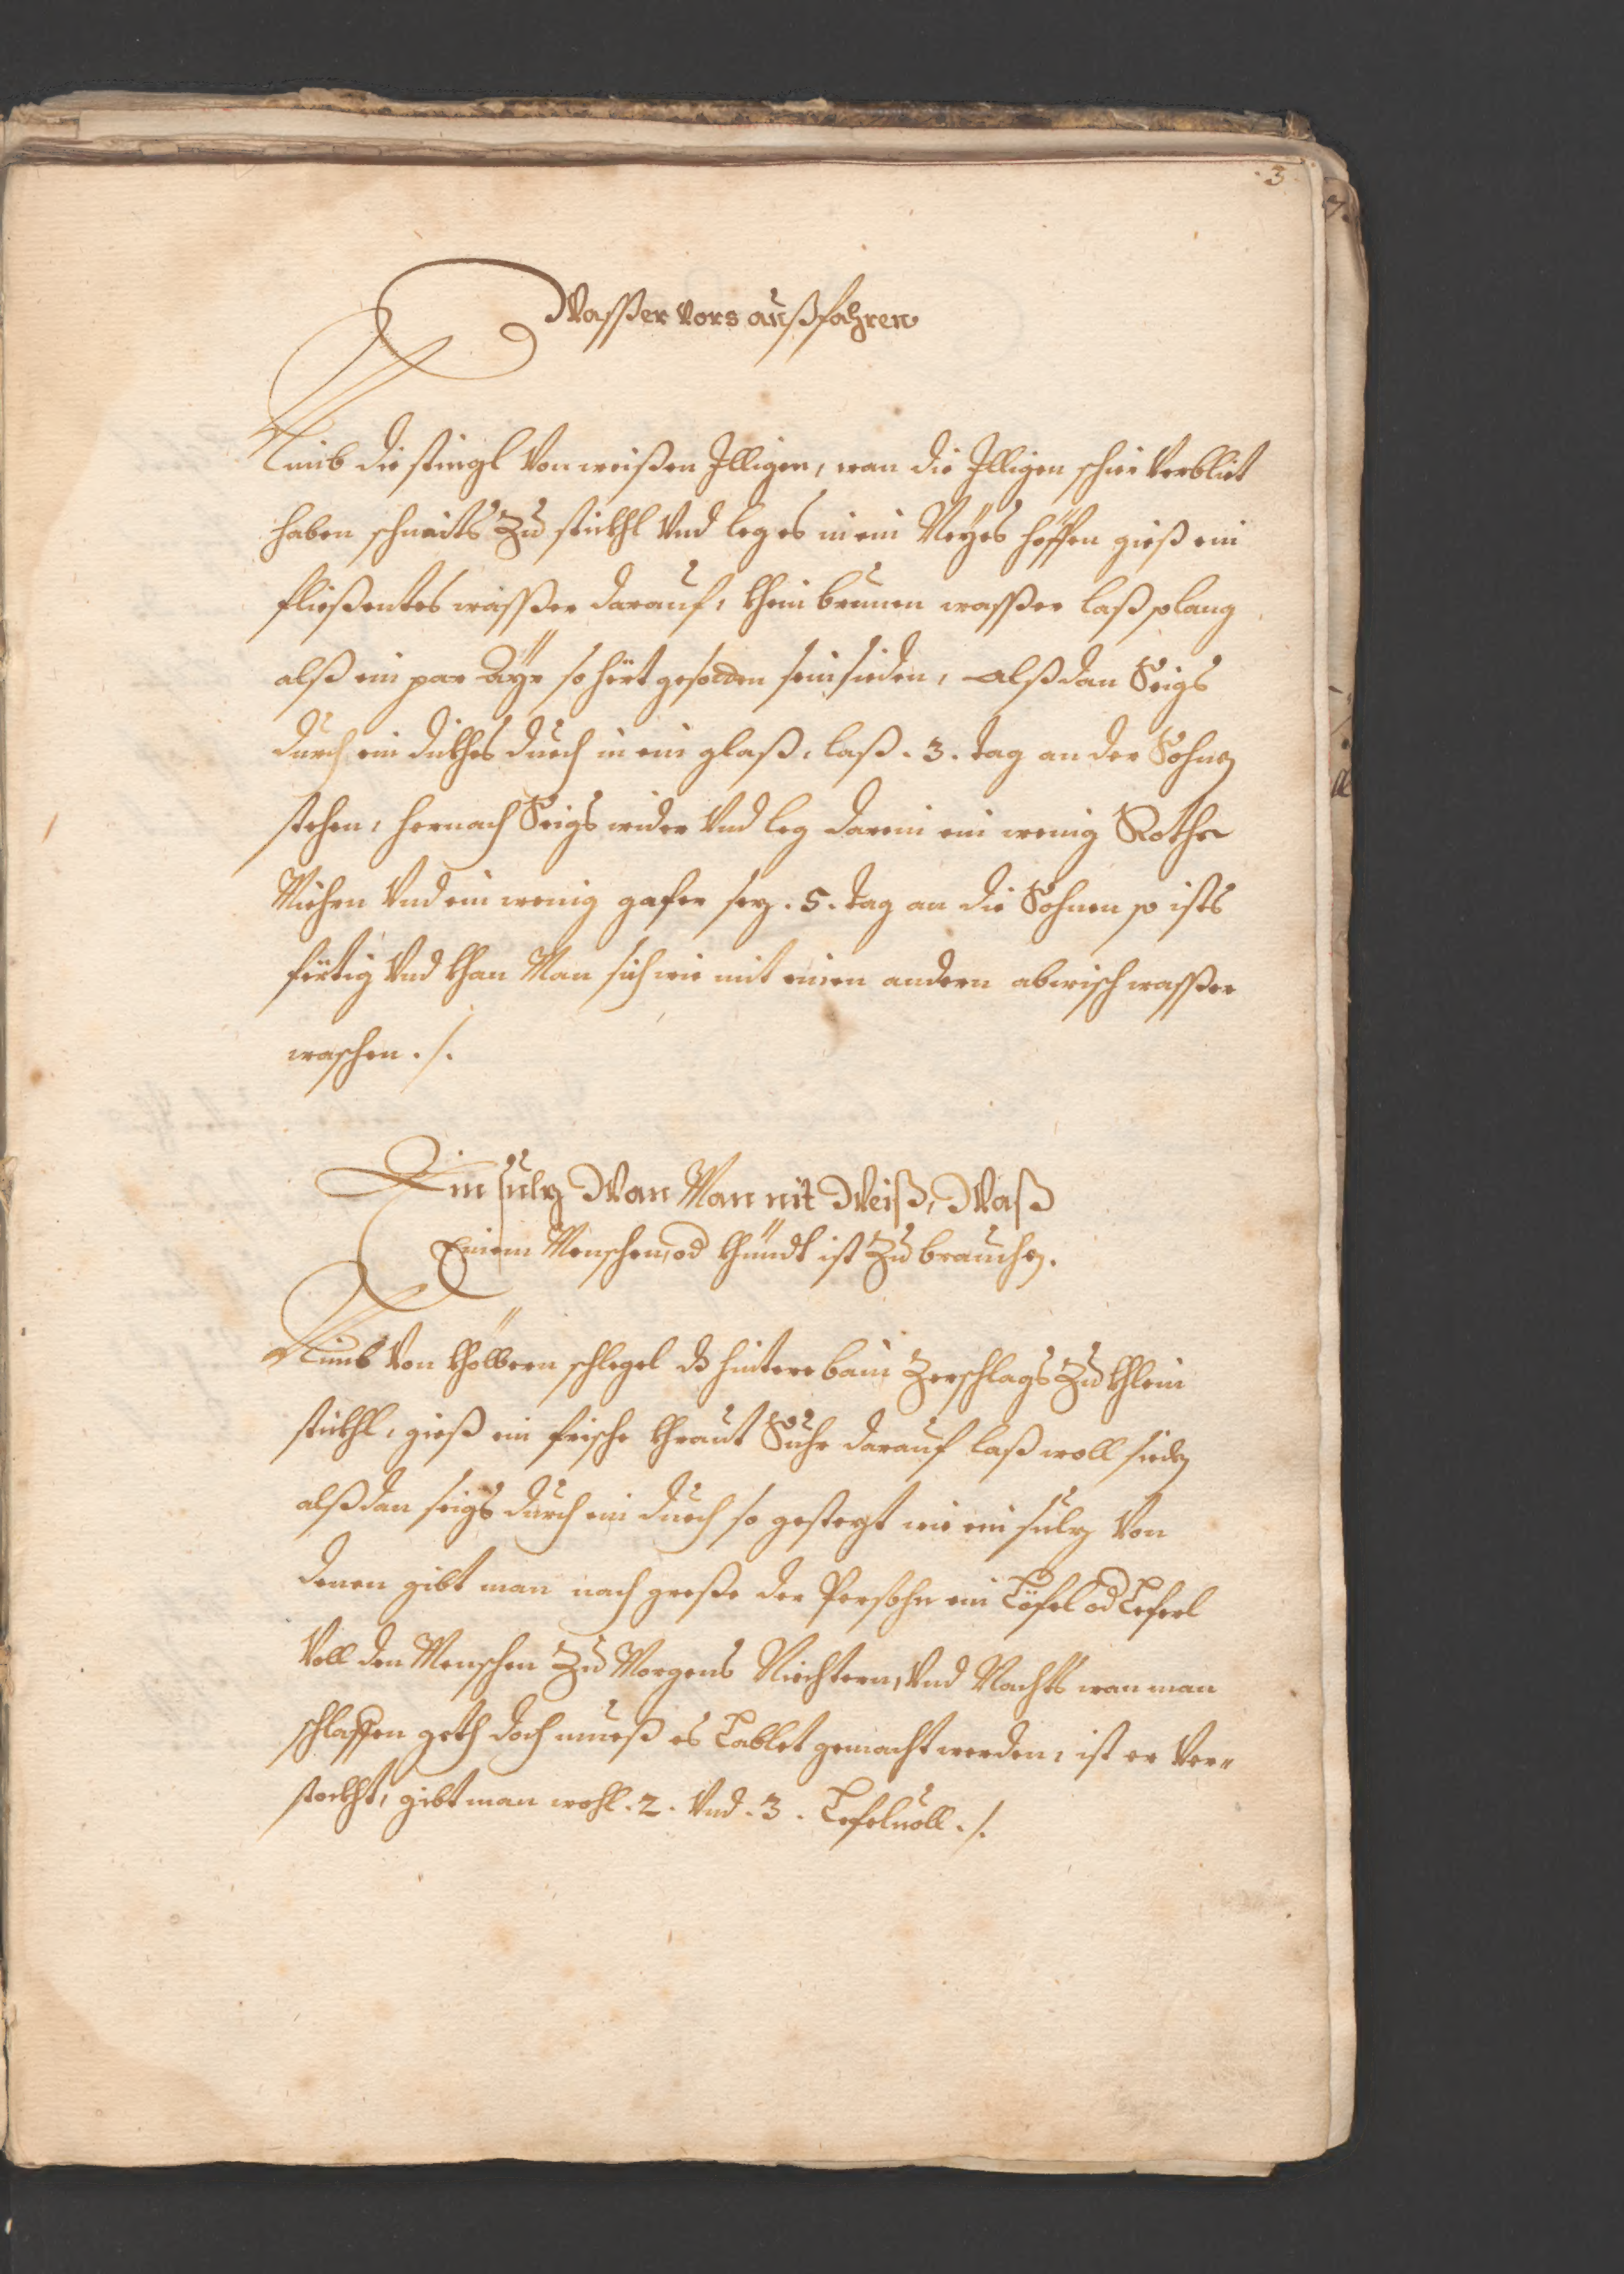 .3.
Wasser vors außfahren
Nimb die stingl von weißen Illigen, wan die Illigen schier verbliet
haben schneits zu stückhl und leg es in ein Neyes höffen gieß ein
fließentes wasser darauf, khein brunen wasser laß solang
alß ein par Ayr so hört gesodten sein sieden, alßdan Seigs
durch ein dickhes duech in ein glaß, laß .3. tag an der Sohnen
stehen, hernach Seigs wider und leg darein ein wenig Rothe
Michen und ein wenig gafer sez .5. tag an die Sohnen so ists
förtig und khan Man sich wie mit einen andern abwisch wasser
waschen ./.
Ein sulz Wan Man nit Weiß, Waß
Einem Menschen, od khündt ist zu brauchen.
Nimb von khölbern schlegel dß hintere bain zerschlags zu khlein
stückhl, gieß ein frische khraut Suhr darauf laß woll sieden
alßdan seigs durch ein duech so gestegt wie ein sulz von
denen gibt man nach greße der Persohn ein Löfel od Leferl
voll den Menschen zu Morgens Niechtern, und Nachts wan man
schlaffen geth doch mueß es Lablet gemacht werden, ist er ver-
stockht, gibt man wohl .2. und .3. Lefeluoll ./.